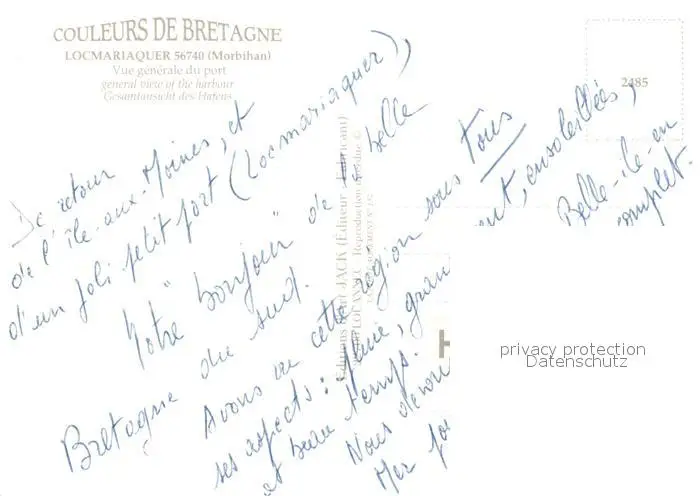 COULEURS DE BRETAGNE
LOCMARIAQUER 56740 (Morbihan)
Vue générale du port
general view of the harbour
Gesamtansicht des Hafens
2485
Editions JACK (Éditeur - Fabricant)
Reproduction interdite ©
De retour
de l'île-aux-Moines, et
d'un joli petit port (Locmariaquer),
Notre "bonjour" de la belle
Bretagne du sud.
Avons vu cette région sous tous
ses aspects : pluie, gran ent, ensoleillées,
et beau temps. Belle-île-en
Nous devon complet.
Mer
privacy protection
Datenschutz